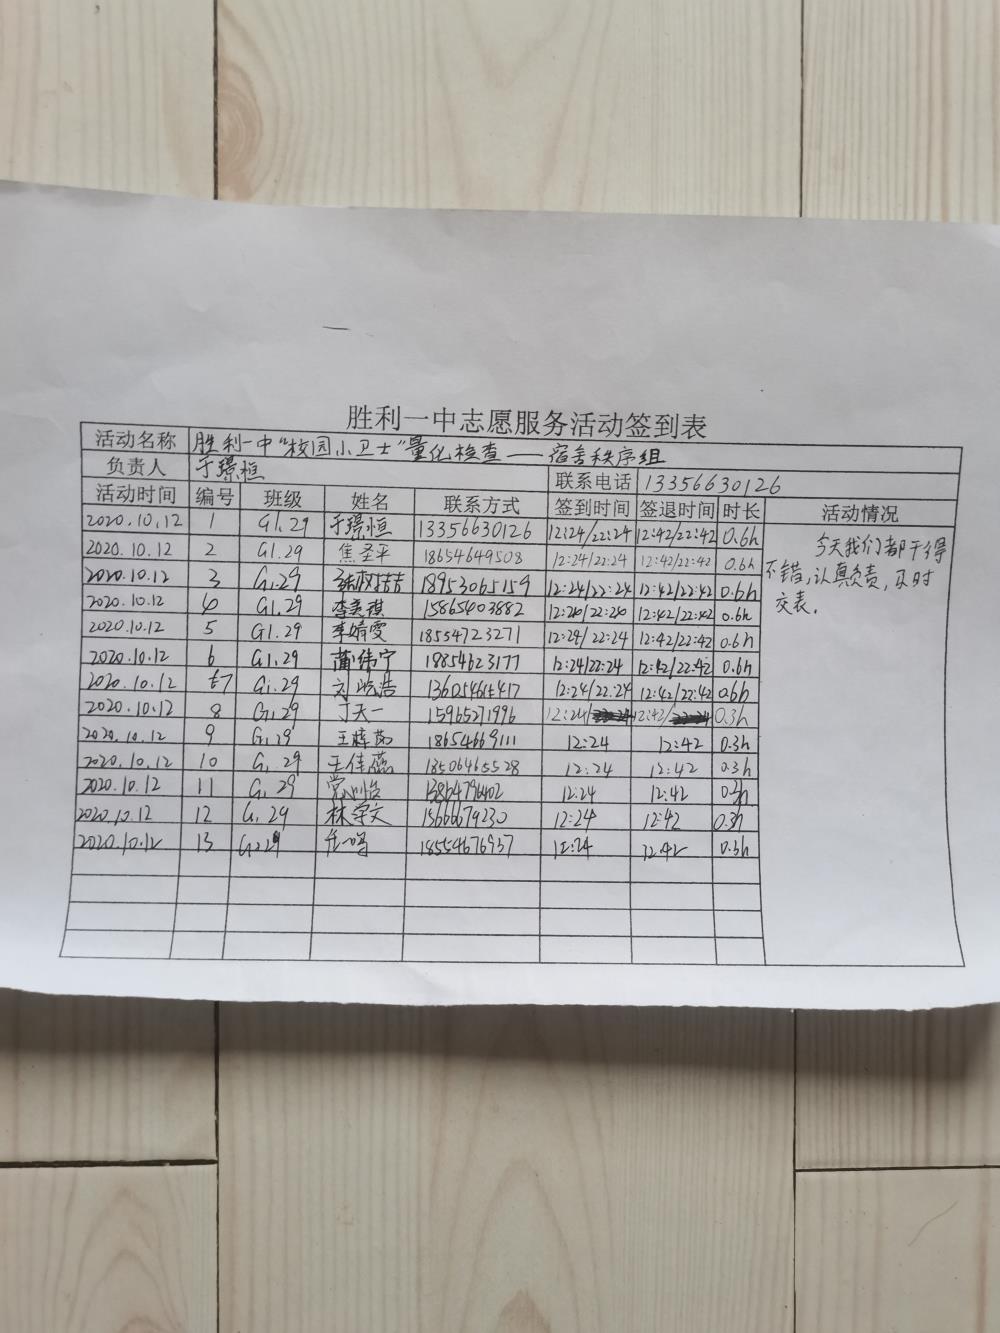 胜利一中志愿服务活动签到表
活动名称 胜利一中“校园小卫士”量化检查——宿舍秩序组
负责人 于璟恒 联系电话 13356630126
活动时间 编号 班级 姓名 联系方式 签到时间 签退时间 时长 活动情况
2020.10.12 1 G1.29 于璟恒 13356630126 12:24/22:24 12:42/22:42 0.6h
2020.10.12 2 G1.29 焦圣平 18654649508 12:24/22:24 12:42/22:42 0.6h
2020.10.12 3 G1.29 18953065159 12:24/22:24 12:42/22:42 0.6h
2020.10.12 4 G1.29 李美祺 15865403882 12:24/22:24 12:42/22:42 0.6h
2020.10.12 5 G1.29 李婧雯 18554723271 12:24/22:24 12:42/22:42 0.6h
2020.10.12 6 G1.29 蔺纬宁 18854623177 12:24/22:24 12:42/22:42 0.6h
2020.10.12 7 G1.29 刘皓浩 12:24/22:24 12:42/22:42 0.6h
2020.10.12 8 G1.29 丁天一 15965271996 12:24/ 12:42/ 0.3h
2020.10.12 9 G1.29 18654669111 12:24 12:42 0.3h
2020.10.12 10 G1.29 王佳蕊 18506465528 12:24 12:42 0.3h
2020.10.12 11 G1.29 13864796402 12:24 12:42 0.3h
2020.10.12 12 G1.29 林学文 15666679230 12:24 12:42 0.3h
2020.10.12 13 G1.29 18554676937 12:24 12:42 0.3h
今天我们都干得
不错,认真负责,及时
交表.